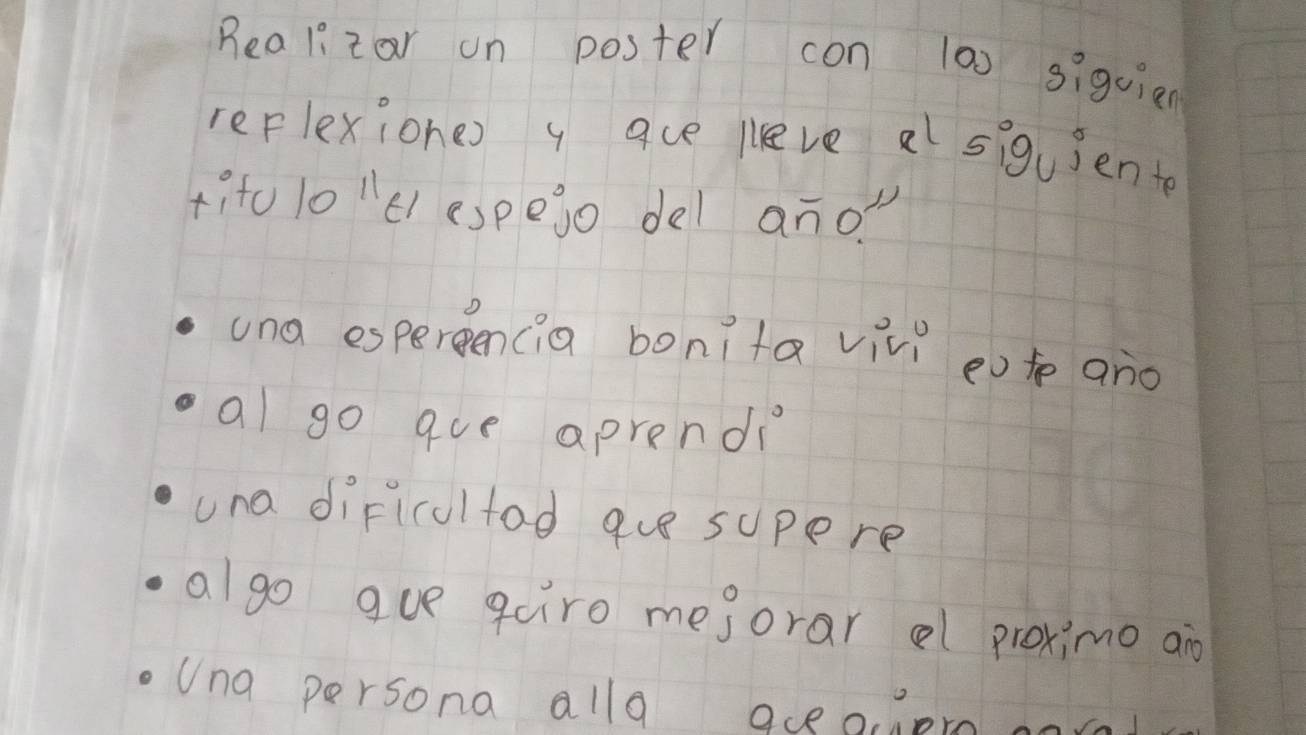 Realizar un poster con las siguien
reflexiones y que lleve el siguiente
titulo "el espejo del año"
• una esperencia bonita viví este año
• al go que aprendí
• una dificultad que supere
• algo que quiro mejorar el proximo año
• Una persona alla que quiero